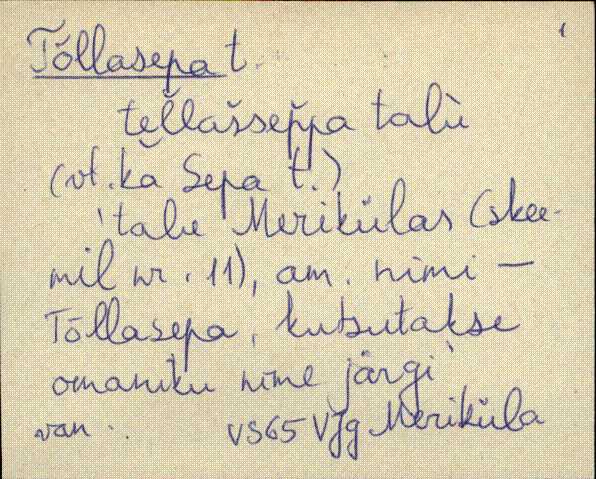 1
Tõllasepa t.
tel̆l̆ašsep̆p̆a talù
(vt. ka Sepa t.)
'talu Merikülas (skee-
mil nr. 11), am. nimi —
Tõllasepa, kutsutakse
omaniku nime järgi'
van. VS65 VJg Meriküla